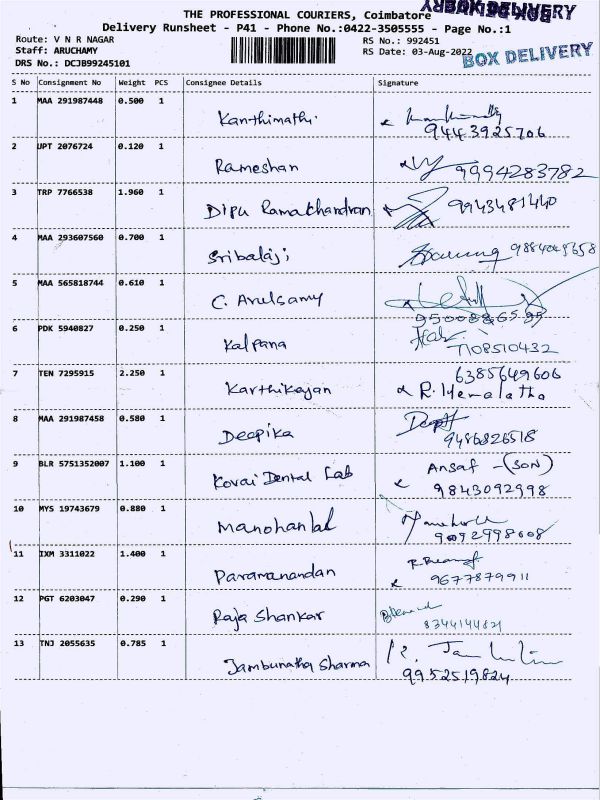 BOX DELIVERY
THE PROFESSIONAL COURIERS, Coimbatore
Delivery Runsheet - P41 - Phone No.:0422-3505555 - Page No.:1
Route: V N R NAGAR
RS No.: 992451
Staff: ARUCHAMY
RS Date: 03-Aug-2022
BOX DELIVERY
DRS No.: DCJB99245101
S No Consignment No Weight PCS Consignee Details Signature
1 MAA 291987448 0.500 1 Kanthimathi.
9443925706
2 UPT 2076724 0.120 1 Rameshan 9994283782
3 TRP 7766538 1.960 1 Dipu Ramachandran 9943481440
4 MAA 293607560 0.700 1 Sribalaji
5 MAA 565818744 0.610 1 C. Arulsamy
6 PDK 5940827 0.250 1 Kalpana
7108510432
7 TEN 7295915 2.250 1 Karthikajan 6385649606
R. Hemalatha
8 MAA 291987458 0.580 1 Deepika
9486826518
9 BLR 5751352007 1.100 1 Kovai Dental Lab Ansaf - (SON)
9843092998
10 MYS 19743679 0.880 1 Manohanlal
9092998608
11 IXM 3311022 1.400 1 Paramanandan
9677879911
12 PGT 6203047 0.290 1 Raja Shankar
8344144821
13 TNJ 2055635 0.785 1 Jambunatha Sharma
9952519824